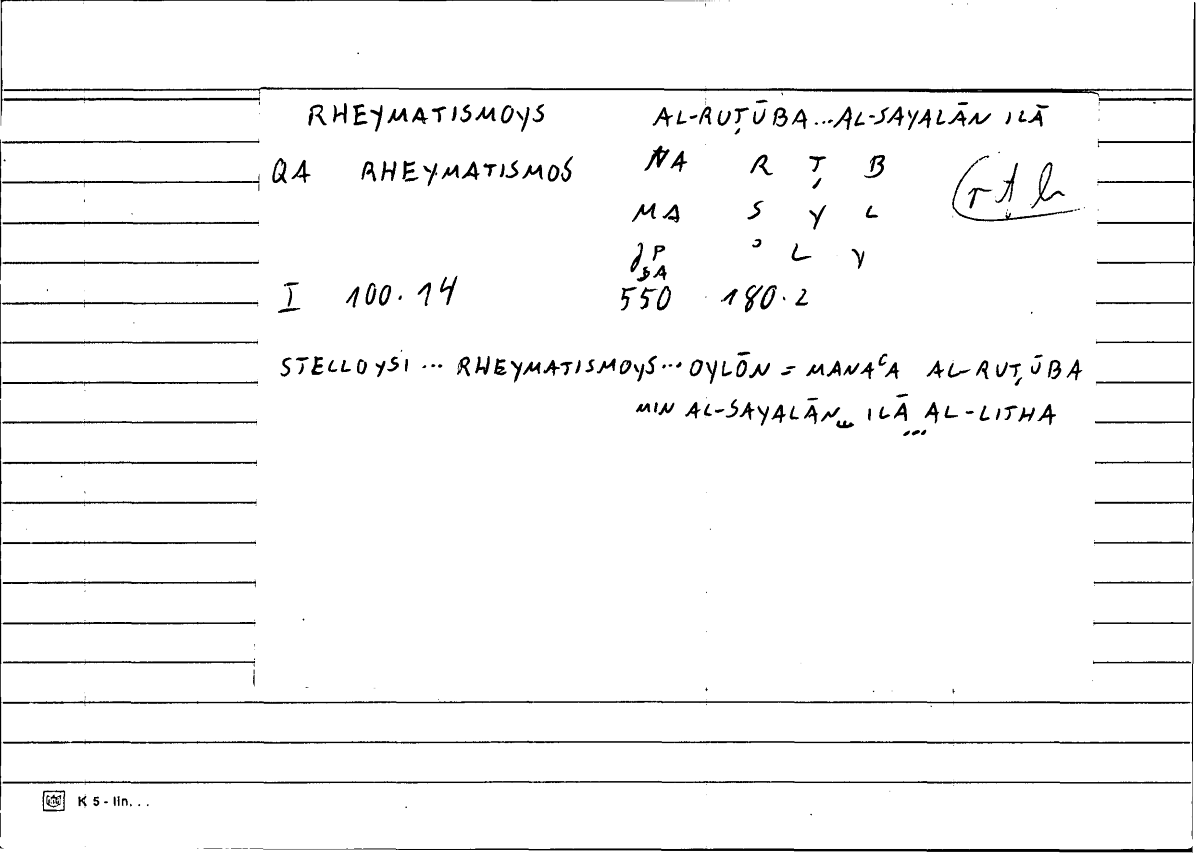 RHEYMATISMOYS AL-RUṬŪBA...AL-SAYALĀN ILĀ
QA RHEYMATISMOS NA R Ṭ B
rṭb
MA S Y L
P ʾ L Y
SA
I 100.14 550 180.2
STELLOYSI ... RHEYMATISMOYS... OYLŌN = MANAʿA AL-RUṬŪBA
MIN AL-SAYALĀN ILĀ AL-LITHA
K 5 - lin. . .